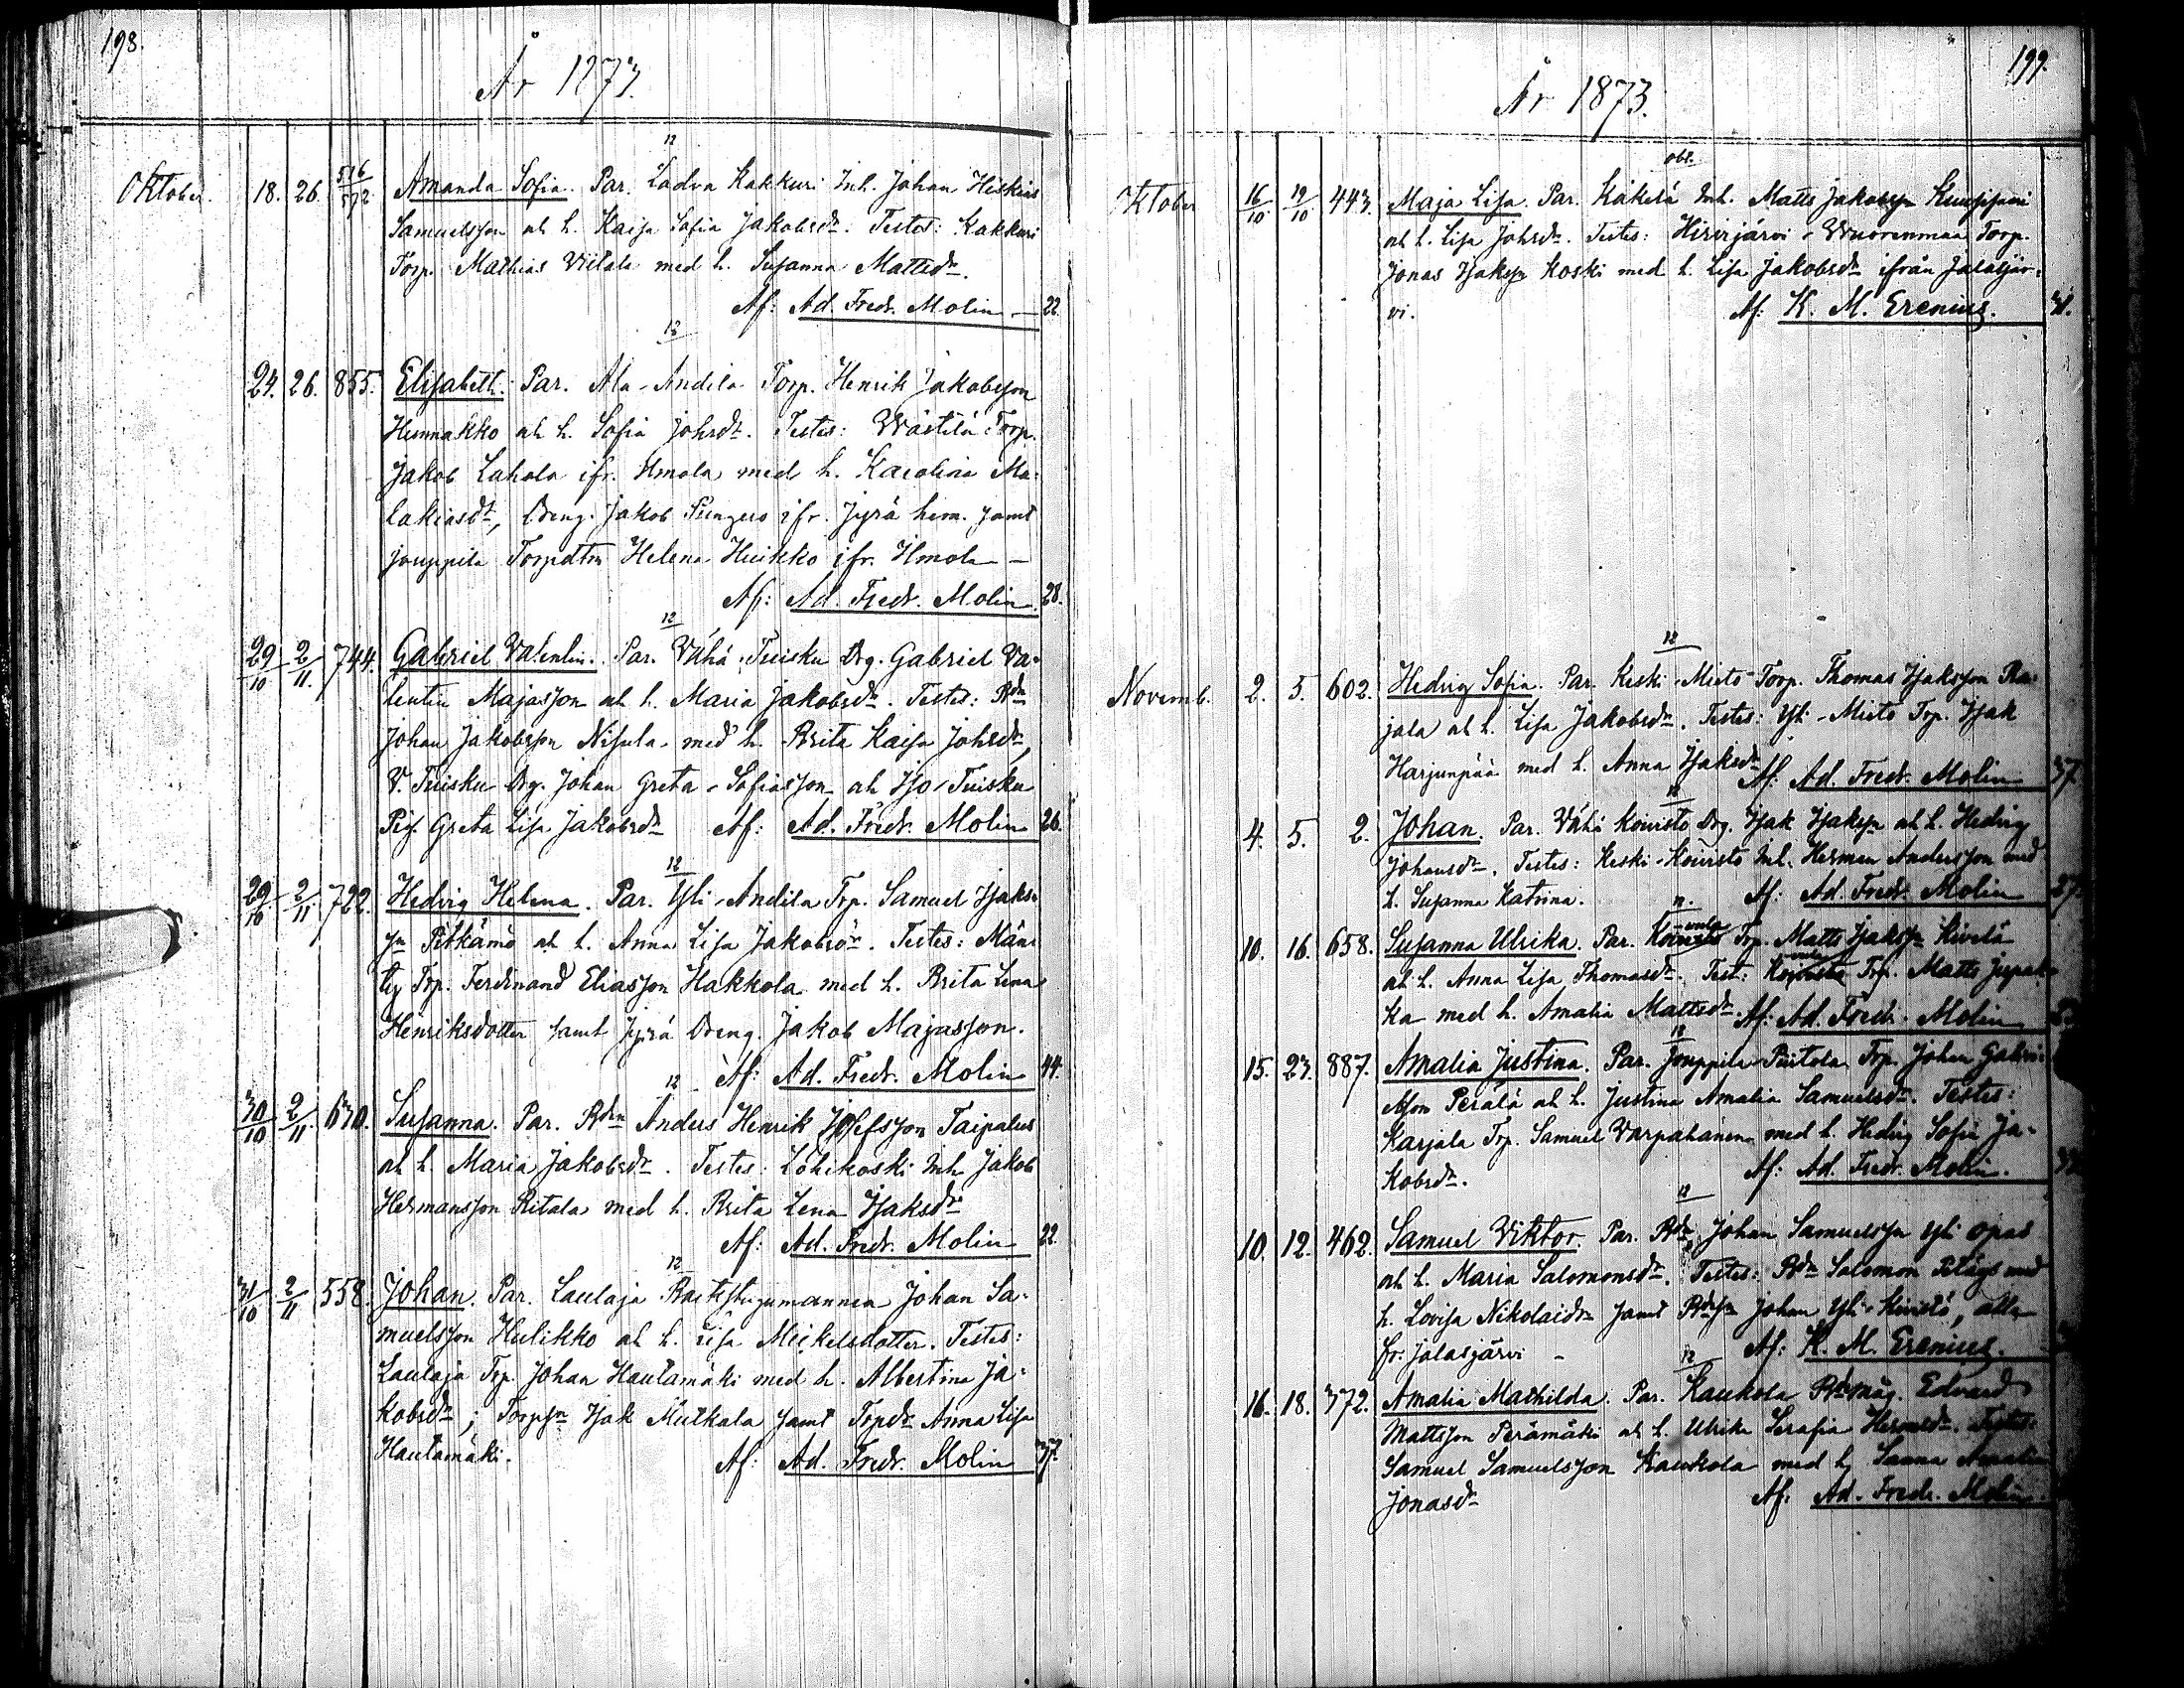 198.
År 1873.
12
Oktober. 18. 26. 516/572 Amanda Sofia. Par. Ladva Kakkuri Inh. Johan Hiskias
Samuelsson och h. Kaisa Sofia Jakobsdr. Testes: Kakkuri
Torp. Mathias Viitala med h. Susanna Mattsdr.
Af: Ad. Fredr. Molin — 22.
12
24. 26. 855. Elisabeth. Par. Ala-Andila Torp. Henrik Jakobsson
Hunnakko och h. Sofia Johsdr. Testes: Wästilä Torp.
Jakob Lahola ifr. Ilmola med h. Karolina Ma-
lakiasdr, Dreng. Jakob Pungus ifr. Jyrä hem. samt
Jouppila Torpdtrn Helena Huikko ifr. Ilmola —
Af: Ad. Fredr. Molin. 28.
12
29/10 2/11. 744. Gabriel Valentin. Par. Vähä-Tuisku Drg. Gabriel Va-
lentin Majasson och h. Maria Jakobsdr. Testes: Bdn
Johan Jakobsson Nisula med h. Brita Kaisa Johsdr,
V. Tuisku Drg. Johan Greta-Sofiasson och Iso-Tuisku
Pig. Greta Lisa Jakobsdr Af: Ad. Fredr. Molin 26.
12
29/10 2/11. 722. Hedvig Helena. Par. Yli-Andila Trp. Samuel Isaks-
sn Pitkämö och h. Anna Lisa Jakobsdr. Testes: Män-
ty Trp. Ferdinand Eliasson Hakkola med h. Brita Lena
Henriksdotter samt Jyrä Dreng. Jakob Majasson.
Af: Ad. Fredr. Molin 44.
12
30/10 2/11. 630. Susanna. Par. Bdn Anders Henrik Josefsson Taipalus
och h. Maria Jakobsdr. Testes: Löhikoski Inh. Jakob
Hermansson Ritala med h. Brita Lena Isaksdr
Af: Ad. Fredr. Molin 22.
12
31/10 2/11 558. Johan. Par. Laulaja Backstugumannen Johan Sa-
muelsson Hulikko och h. Lisa Mickelsdotter. Testes:
Laulaja Trp. Johan Hautamäki med h. Albertina Ja-
kobsdr; Torpsn Isak Mutkala samt Trpdr Anna Lisa
Hautamäki. Af: Ad. Fredr. Molin 37.
199.
År 1873.
obs.
Oktober 16/10. 19/10 443. Maja Lisa. Par. Käkelä Inh. Matts Jakobsn
och h. Lisa Johsdr. Testes: Hirvijärvi-Wuorenmaa Torp.
Jonas Isaksn Koski med h. Lisa Jakobsdr ifrån Jalasjär-
vi. Af: K. M. Erenius. 41.
12
Novemb. 2. 5. 602. Hedvig Sofia. Par. Keski-Mieto Torp. Thomas Isaksson Ra-
jala och h. Lisa Jakobsdr. Testes: Yli-Mieto Trp. Isak
Harjunpää med h. Anna Isaksdr Af: Ad. Fredr. Molin 37.
12
4. 5. 2. Johan. Par. Vähä Koivisto Drg. Isak Isaksn och h. Hedvig
Johansdr. Testes: Keski-Koivisto Inh. Herman Andersson med
h. Susanna Katrina. Af: Ad. Fredr. Molin 27.
10. 16. 658. Susanna Ulrika. Par. Koivisto Trp. Matts Isaksn Kivelä
och h. Anna Lisa Thomasdr. Test: Koivisto Trp. Matts
ka med h. Amalia Mattsdr. Af: Ad. Fredr. Molin
12
15. 23. 887. Amalia Justina. Par. Jouppila-Piitola Trp. Johan Gabri-
elsson Perälä och h. Justina Amalia Samuelsdr. Testes:
Karjala Trp. Samuel Varpahanen med h. Hedvig Sofia Ja-
kobsdr. Af: Ad. Fredr. Molin.
12
10. 12. 462. Samuel Viktor. Par. Bdn Johan Samuelssn Yli Opas
och h. Maria Salomonsdr. Testes: Bdn Salomon med
h. Lovisa Nikolaidr samt Bdsn Johan Yli-Kivistö, alla
fr. Jalasjärvi — Af: K. M. Erenius.
12
16. 18. 372. Amalia Mathilda. Par. Kaukola Bdmåg. Edvard
Mattsson Perämäki och h. Ulrika Serafia Hermsdr. Testes:
Samuel Samuelsson Kaukola med h. Sanna Amalia
Jonasdr Af: Ad. Fredr. Molin.